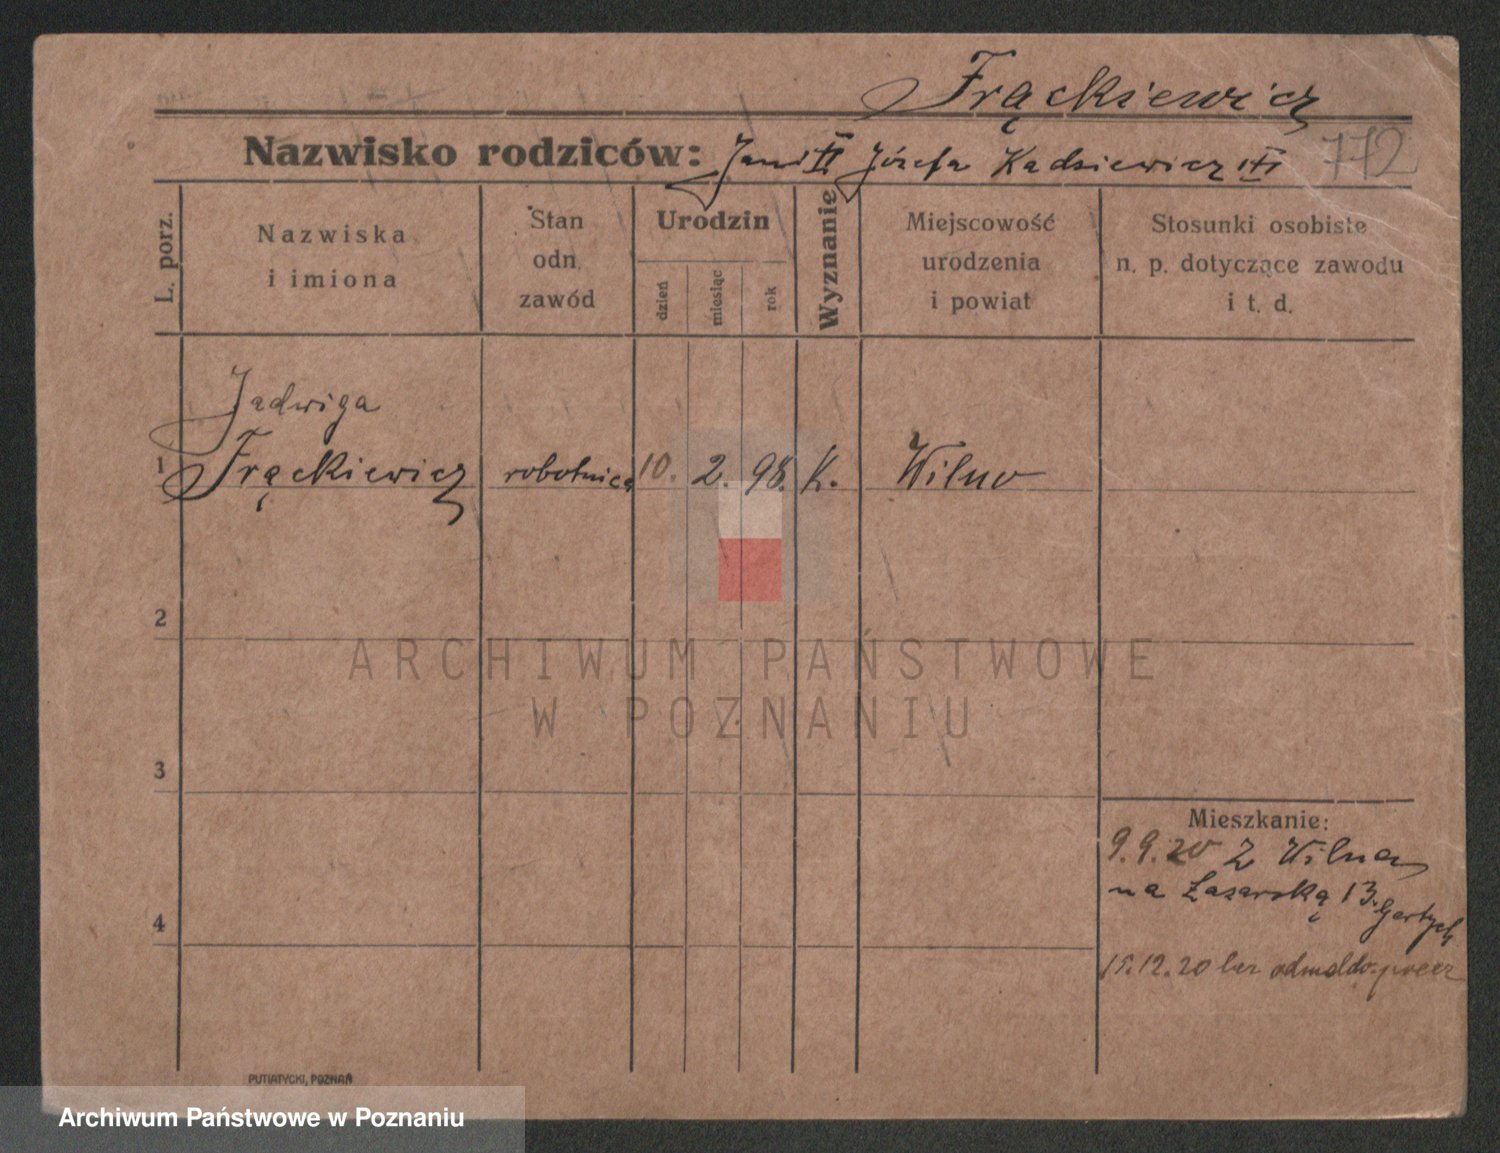 Frąckiewicz
Nazwisko rodziców: Jan Józefa Kadziewicz
772
L. porz.
Nazwiska
i imiona
Stan
odn.
zawód
Urodzin
dzień
miesiąc
rok
Wyznanie
Miejscowość
urodzenia
i powiat
Stosunki osobiste
n. p. dotyczące zawodu
i t. d.
Jadwiga
1 Frąckiewicz robotnica 10. 2. 98. K. Wilno
2
3
4
Mieszkanie:
9.9.20 Z Wilna
na Łazarską 13.
15.12.20 bez odmeldo.
ARCHIWUM PAŃSTWOWE
W POZNANIU
PUTIATYCKI, POZNAŃ
Archiwum Państwowe w Poznaniu